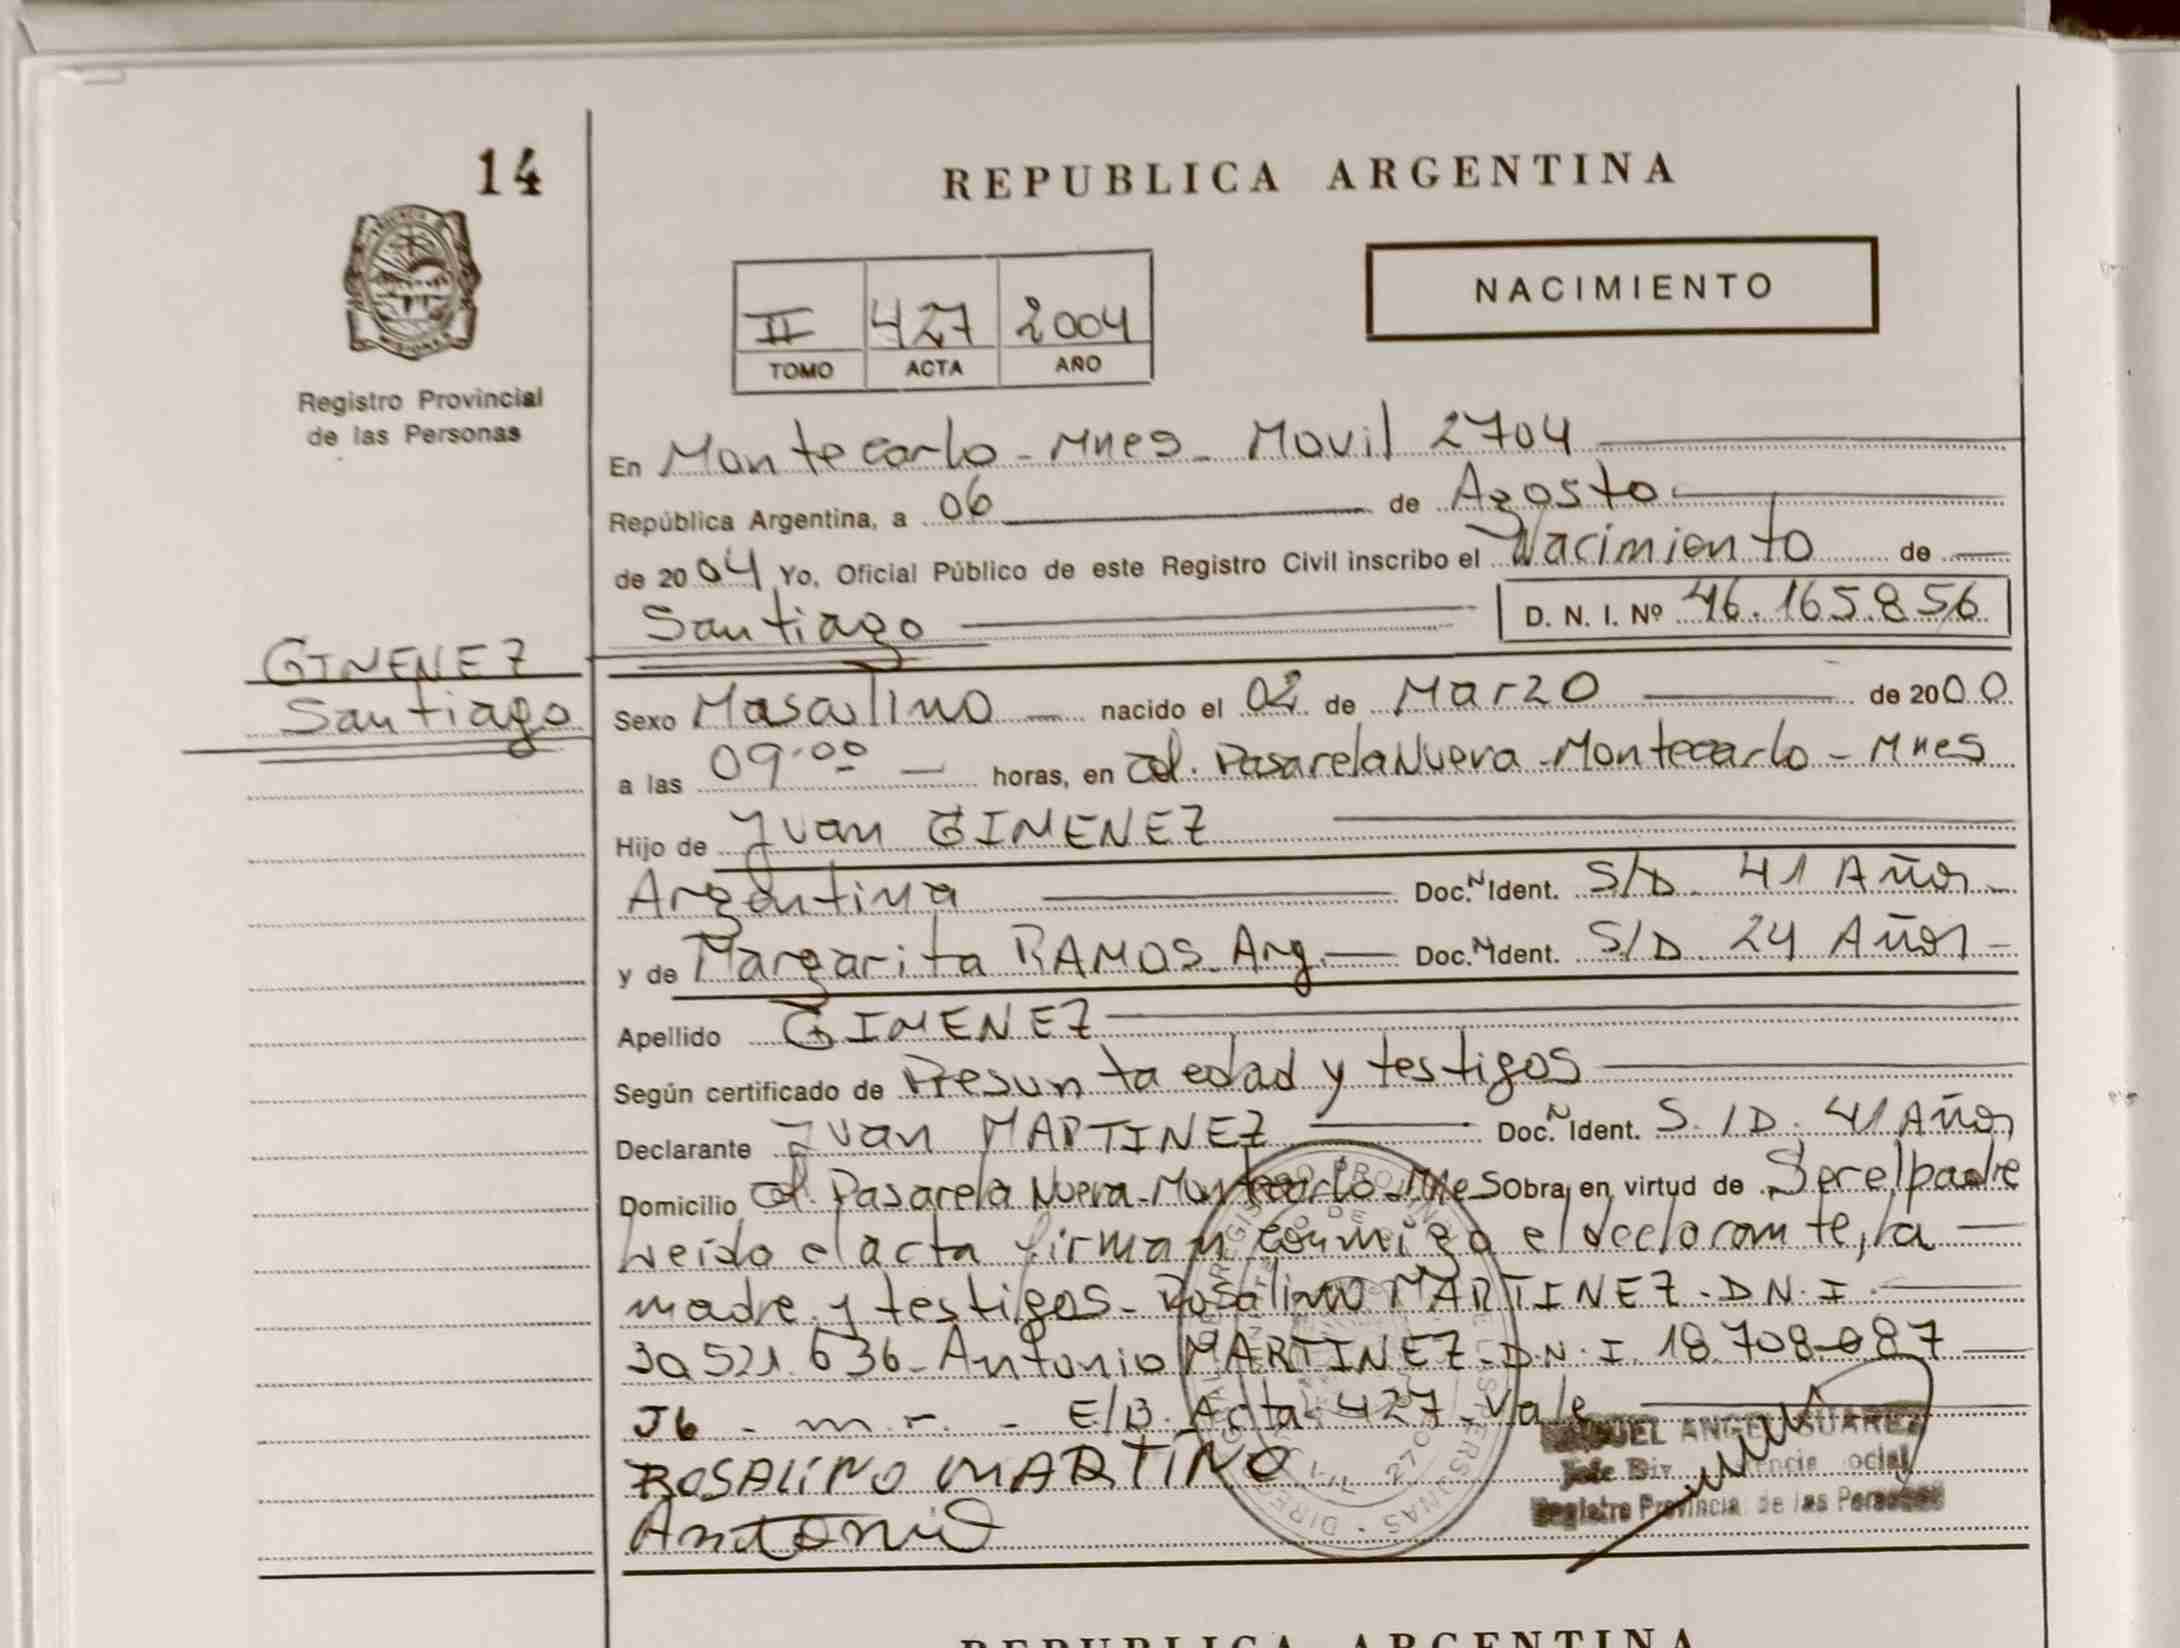 14
REPUBLICA ARGENTINA
NACIMIENTO
II 427 2004
TOMO ACTA AÑO
Registro Provincial
de las Personas
En Montecarlo - Mnes - Movil 2704
República Argentina, a 06 de Agosto
de 2004 Yo, Oficial Público de este Registro Civil inscribo el Nacimiento de
Santiago D. N. I. Nº 46.165.856
GIMENEZ
Santiago
Sexo Masculino nacido el 02 de Marzo de 2000
a las 09:00 horas, en Col. Pasarela Nueva - Montecarlo - Mnes
Hijo de Juan GIMENEZ
Argentina Doc. N Ident. S/D. 41 Años
y de Margarita RAMOS. Arg. Doc. N Ident. S/D. 24 Años
Apellido GIMENEZ
Según certificado de Presunta edad y testigos
Declarante Juan MARTINEZ Doc. N Ident. S./D. 41 Años
Domicilio Col. Pasarela Nueva - Montecarlo - Mnes Obra, en virtud de Ser el padre
Leido el acta firman conmigo el declarante, la
madre y testigos - Rosalino MARTINEZ - D.N.I.
30 521.636 - Antonio MARTINEZ - D.N.I. 18.708-087
J6 - m.r. - E/B. Acta 427 - Vale
ROSALINO MARTINO
Antonio
MIGUEL ANGEL SUAREZ
Jefe Div.
Registro Provincial de las Personas
REPUBLICA ARGENTINA